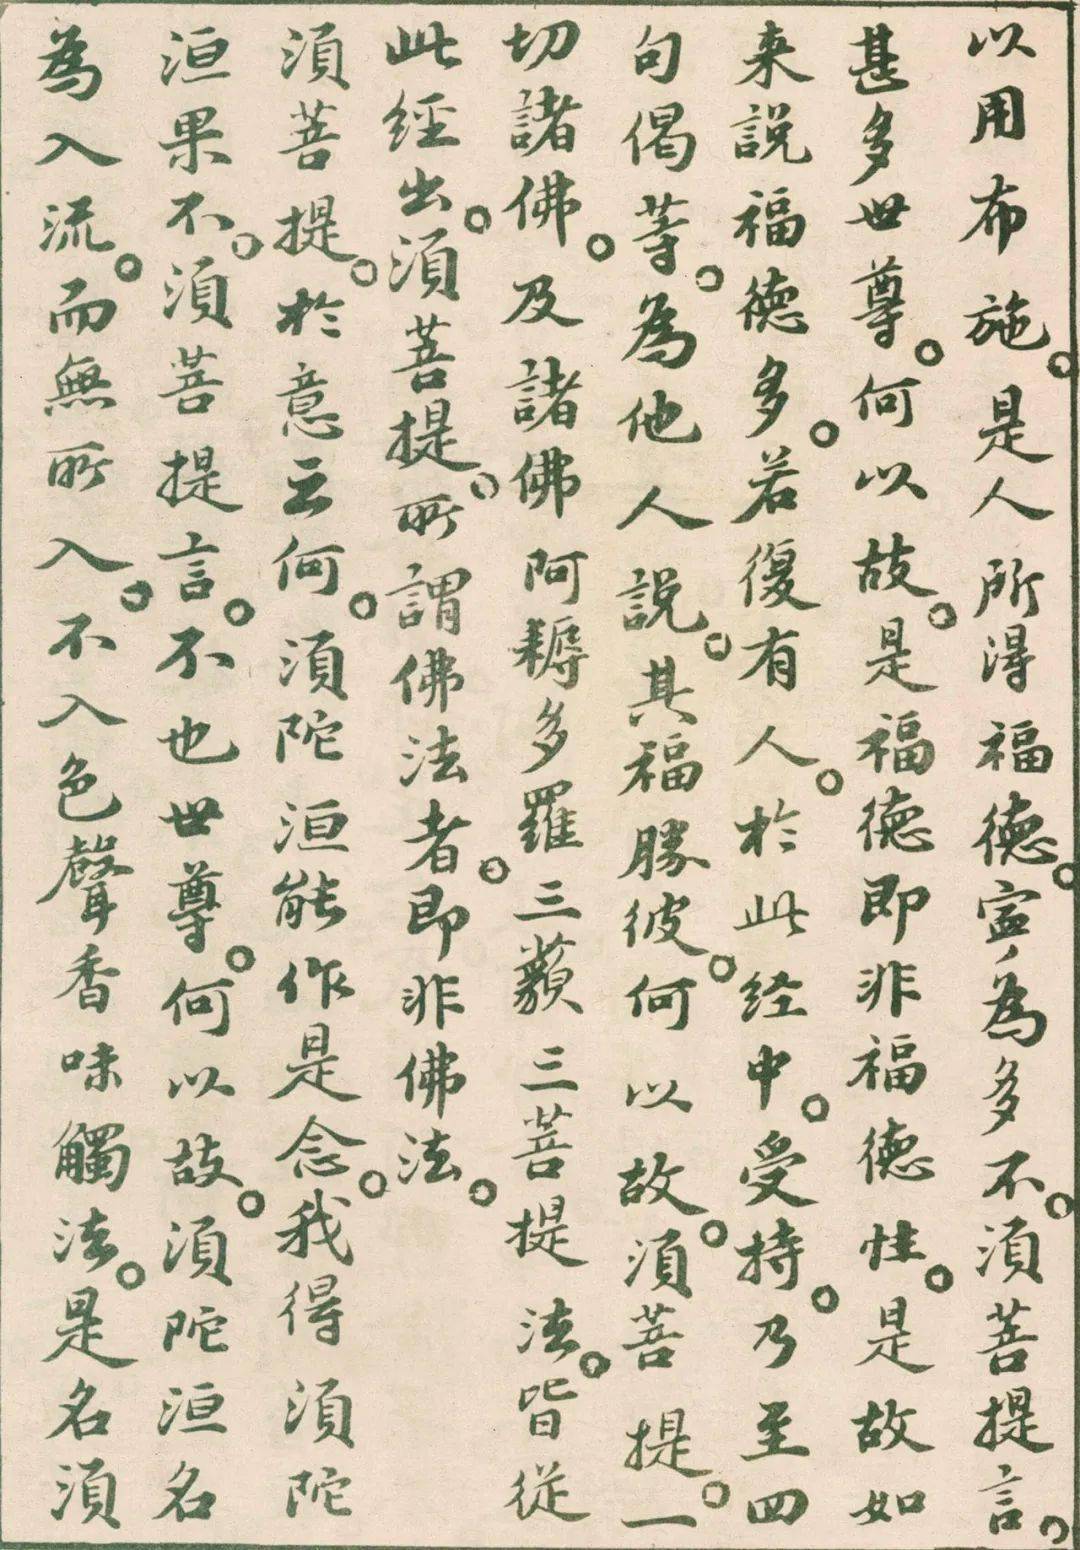 以用布施。是人所得福德。寍為多不。須菩提言。
甚多世尊。何以故。是福德即非福德性。是故如
来說福德多。若復有人。於此经中。受持。乃至四
句偈等。為他人說。其福勝彼。何以故。須菩提。一
切諸佛。及諸佛阿耨多羅三藐三菩提法。皆從
此經出。須菩提。所謂佛法者。即非佛法。
須菩提。於意云何。須陀洹能作是念。我得須陀
洹果不。須菩提言。不也世尊。何以故。須陀洹名
為入流。而無所入。不入色聲香味觸法。是名須